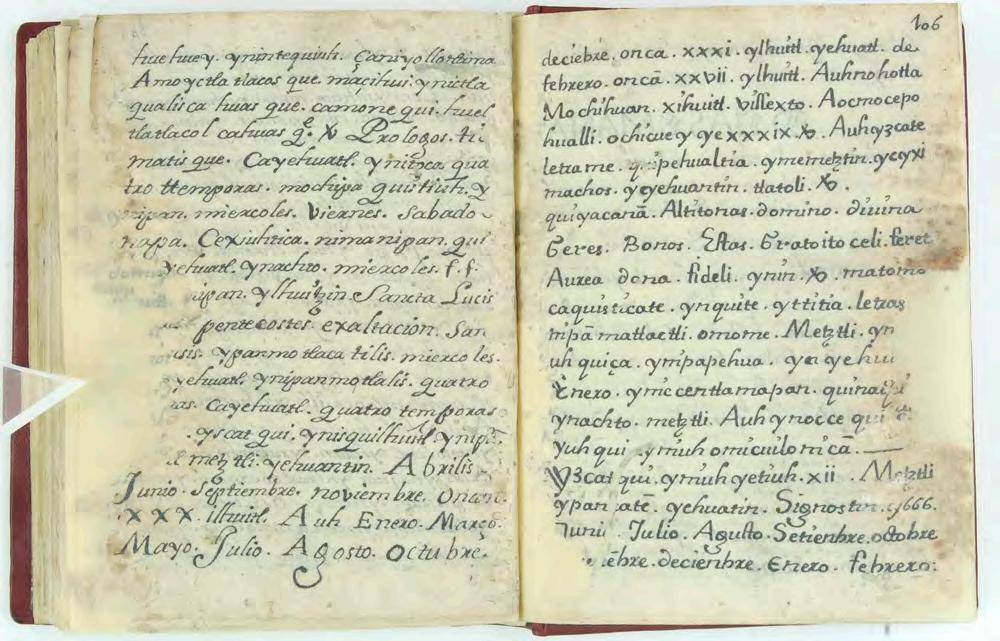 huehuey. ynintequiuh. Caniyollotzima
Amo yctla tlacos que. maçihui. ynictla
qualisca huas que. camone qui. huel
tlatlacol cahuas qe. X Prologos. ti
matis que. Cayehuatl. ynitzca qua
tro ttemporas. mochipa quistiuh. y
ipan. miercoles. Viernes. Sabado
napa. Cexiuhtica. nimanipan. qui
yehuatl. ynachto. miercoles. f. f.
ipan. ylhuitzin Sancta Lucis
pentecostes. exaltacion. San
sis. ypanmo tlaca tilis. miercoles.
yehuatl. ynipanmotlalis. quatro
as. Cayehuatl. quatro temporas
yscat qui. ynisquilhuitl ynipā.
metztli. yehuantin. Abrilis
Junio. Septiembre. noviembre. Oncan.
XXX. ilhuitl. Auh Enero. Março.
Mayo. Julio. Agosto. Octubre.
106
deciēbre. onca. xxxi. ylhuitl. yehuatl. de
febrero. oncā. xxvii. ylhuitl. Auhnohotla
Mochihuan. xihuitl. Villexto. Aocmocepo
hualli. ochicuey yexxxix. X. Auhyzcate
letrame. quipehualtia. ymemetztin. ycyxi
machos. yeyehuantin. tlatoli. X.
quiyacanā. Altitonas. domino. diuina
Geres. Bonos. Estas. Gratoito celi. feret
Aurea dona. fideli. ynin. X. matomo
caquisticate. ynquite. yttitia. letras
nipā matlactli. omome. Metztli. yn
uh quiça. ympapehua. ya yehu
Enero. ymccentlamapan. quina
ynachto. metztli. Auh ynocce qui
yuh qui. ymiuh omicuilo nicā.
Yzcat qui. ymiuh yetiuh. xii. Metztli
ypan. yehuatin. Signostin. y666.
Juni. Julio. Agusto. Setienbre. octobre
iēbre. decienbre. Enero. febrero: